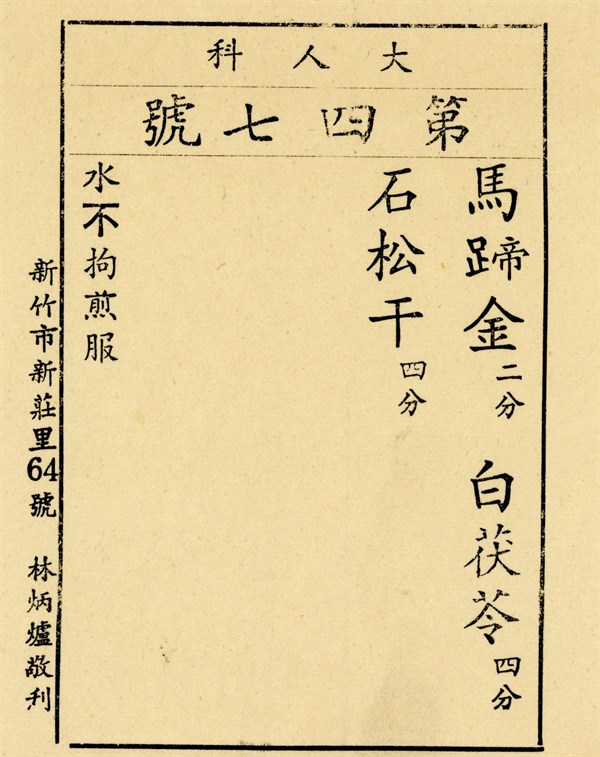 大人科
第四七號
馬蹄金二分 白茯苓四分
石松干四分
水不拘煎服
新竹市新莊里64號 林炳爐敬利